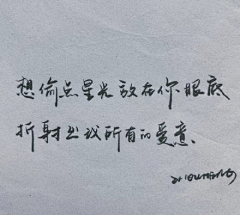 想偷点星光放在你眼底
折射出我所有的爱意